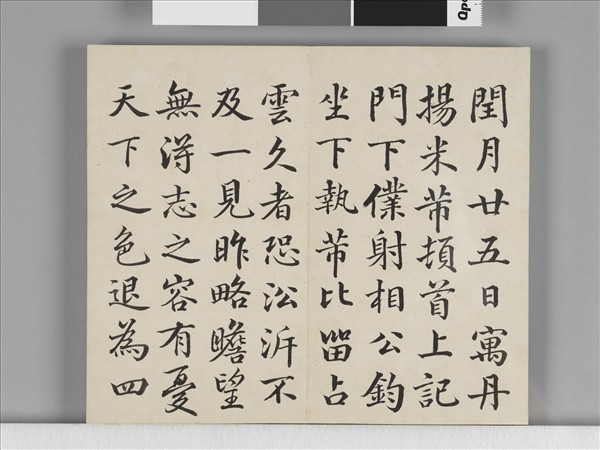 閏月廿五日寓丹
揚米芾頓首上記
門下僕射相公鈞
坐下執芾比留占
雲久者恐沿泝不
及一見昨略瞻望
無得志之容有憂
天下之色退為四